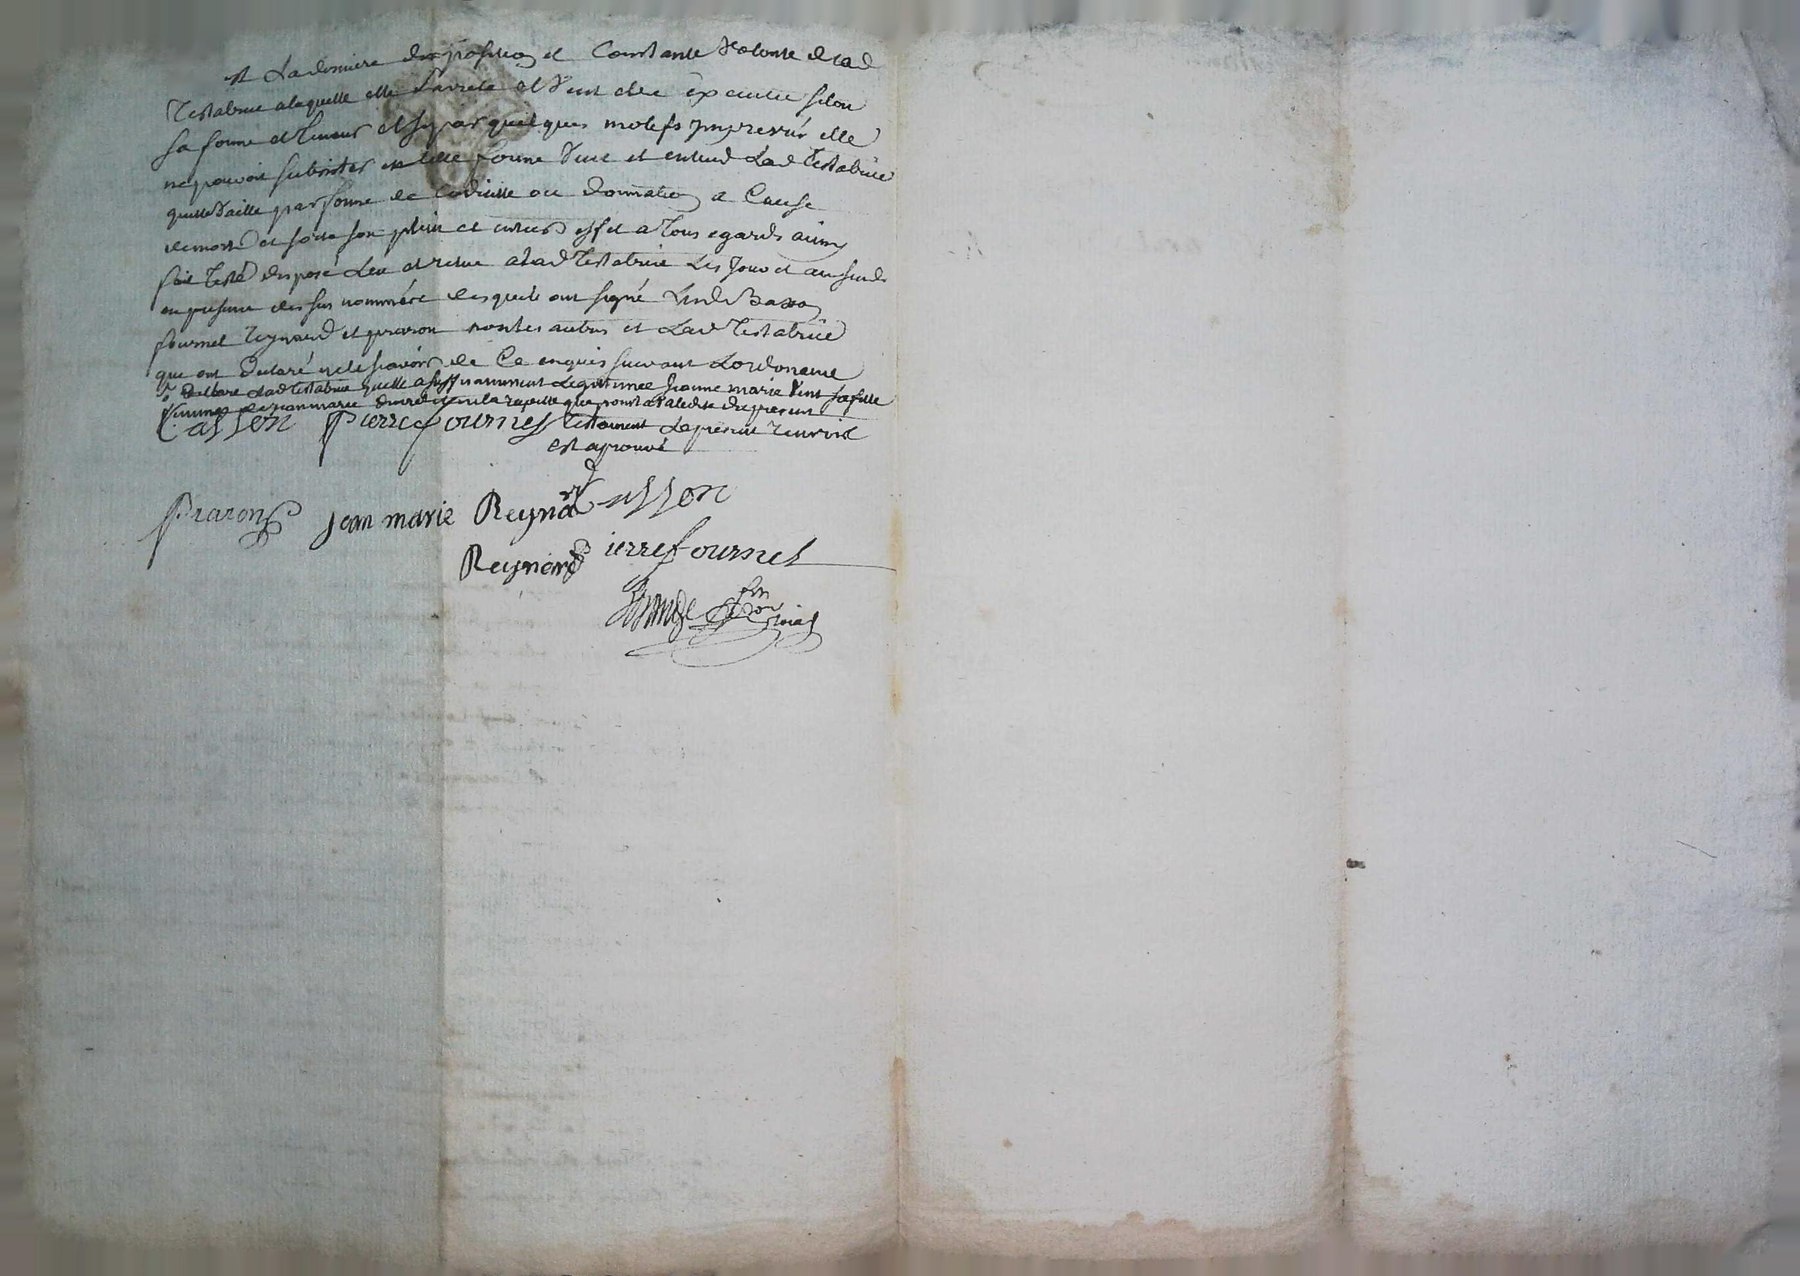 et La derniere disposition et Constante Volonté de lad
Testatrice alaquelle elle Sarrete et Veut etre executée selon
sa forme et Teneur et sy par quelques motifs Jmprevûs elle
ne pouvoit subsister en telle forme Veut et entend Lad Testatrice
quelle Vaille par forme de Codicille ou donnation a Cause
de mort et sorte son plein et entier effet a Tous egards ainsy
fait Testé disposé Leu et relue alad Testatrice Les Jour et an susds
en presence des sus nommées lesquels ont signé
fournel Reynaud et praron non les autres et Lad Testatrice
que ont declaré ne le sçavoir de Ce enquis suivant Lordonance
declare Lad Testatrice quelle a suffisamment Legitimée Jeanne marie Vint sa fille
femme de Jean marie
Casson Pierre fournel Testament Le present renvoit
est aprouvé
Praron Jean marie Reynard Casson
Reynard ierre fournel